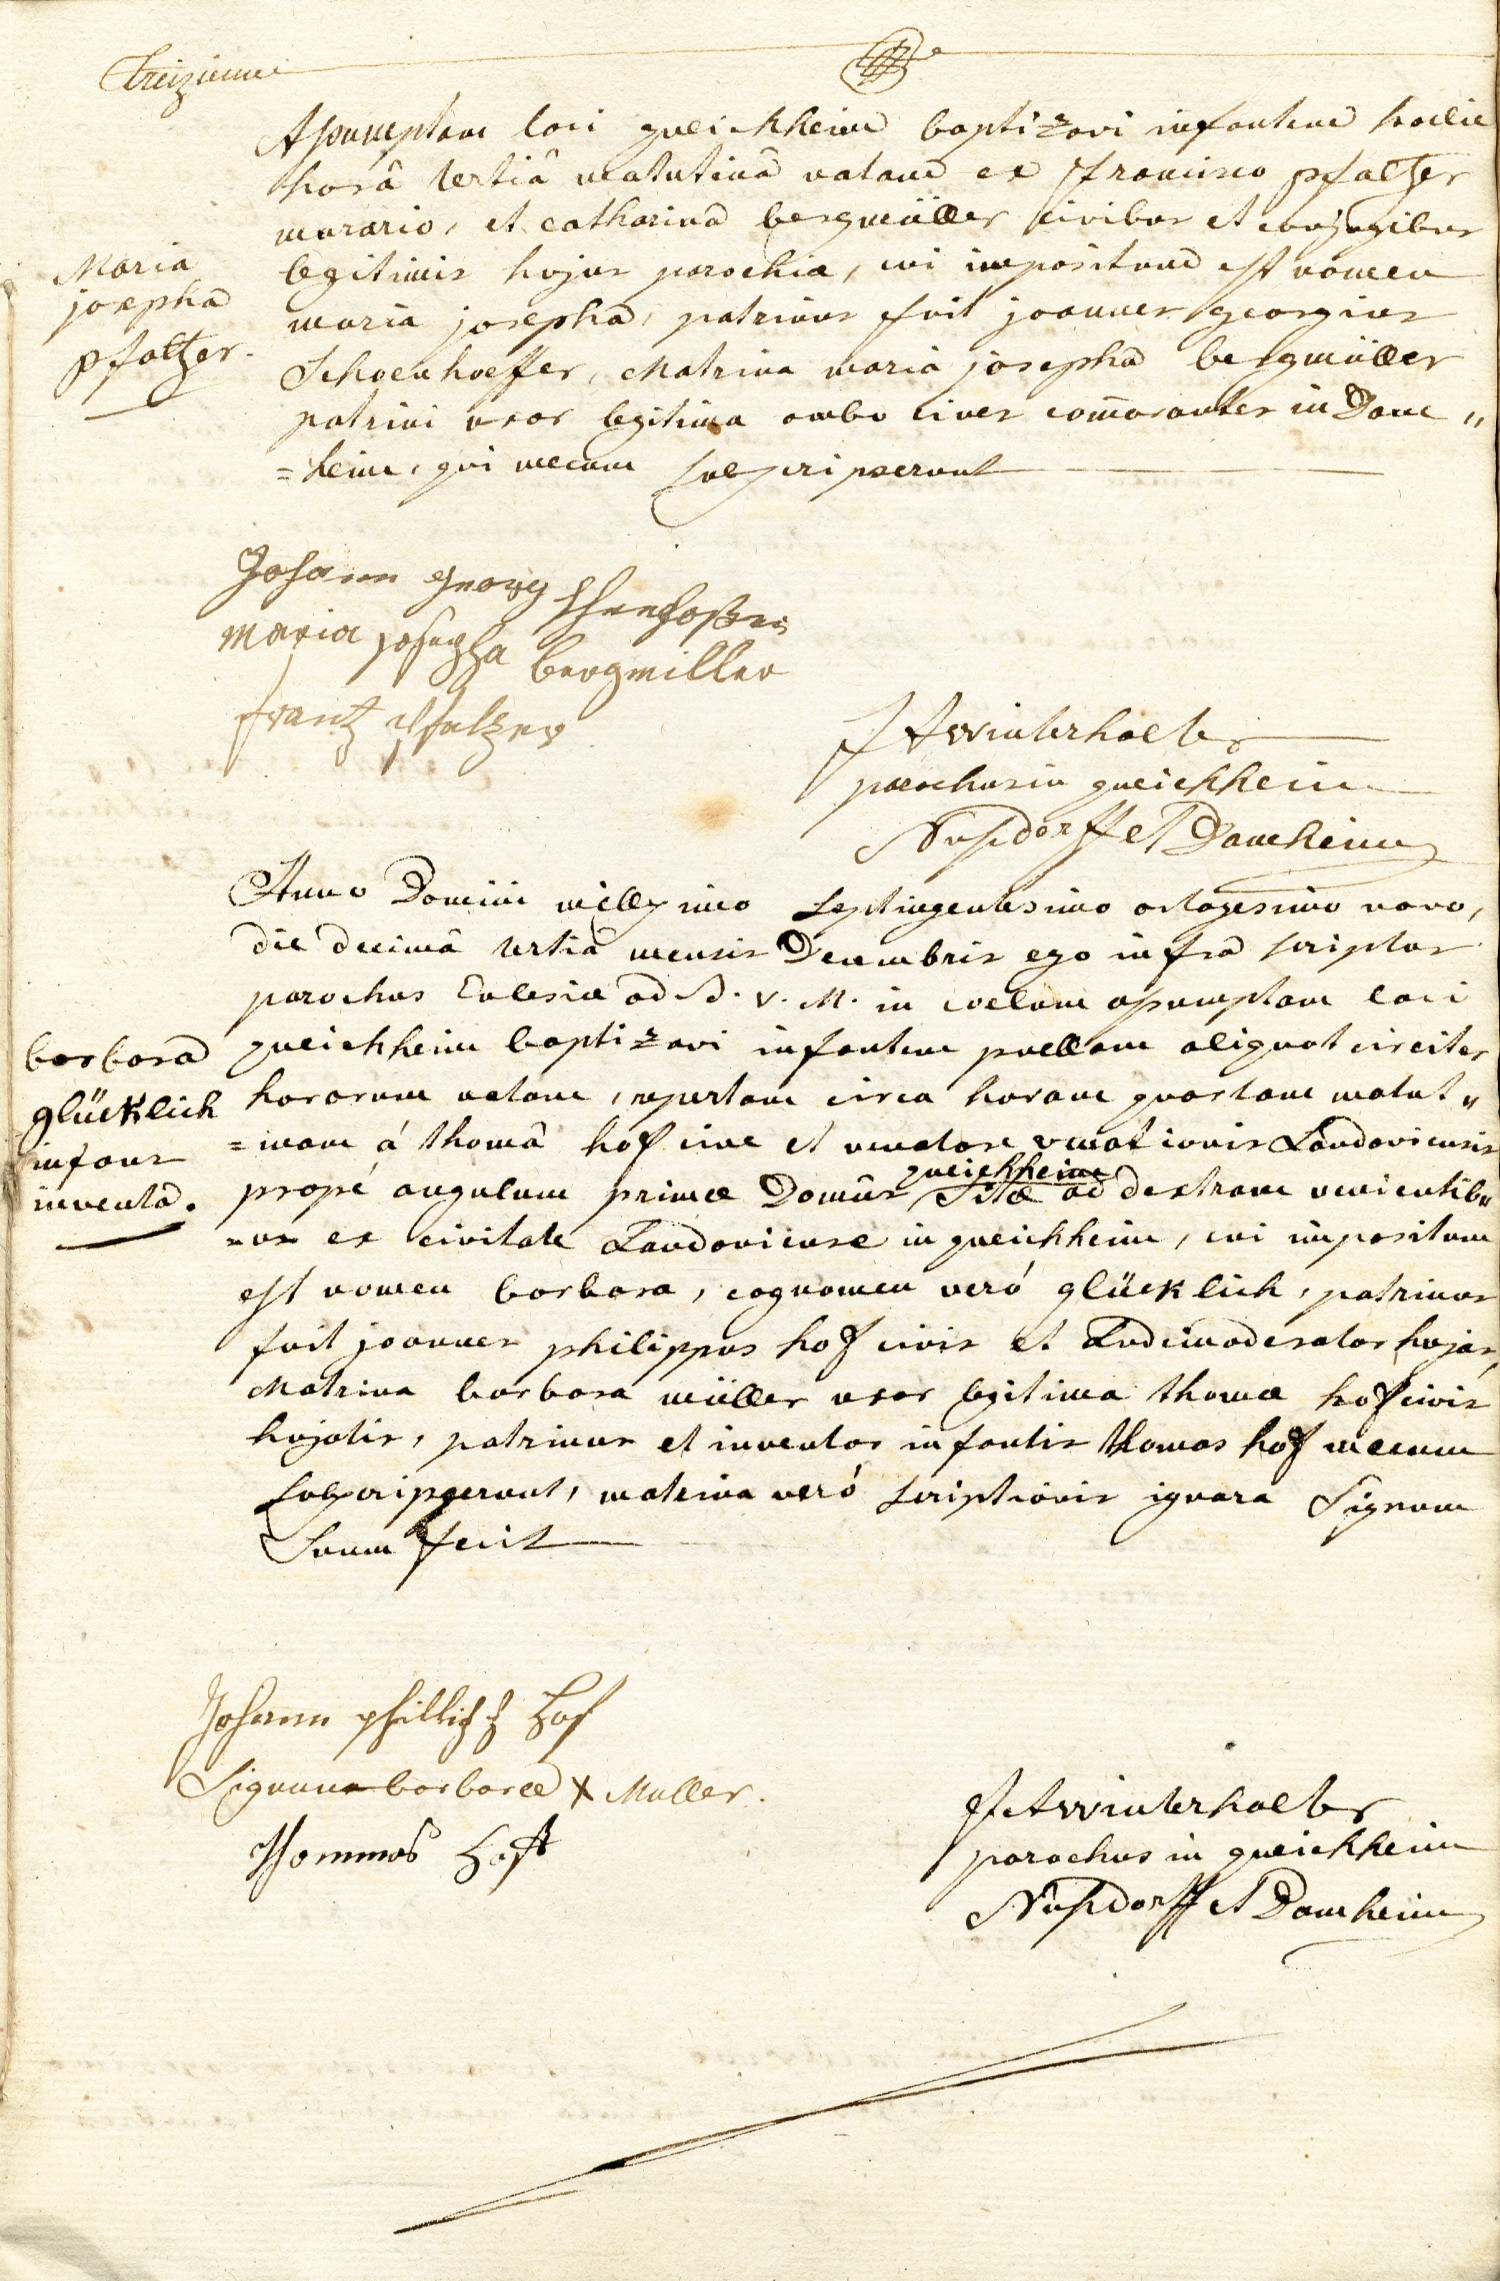 Treizieme
Assumptam loci queichheim baptizavi infantem hodie
horâ tertiâ matutinâ natam ex francisco pfaltzer
murario, et catharina bergmüller civibus et conjugibus
legitimis hujus parochiæ, cui impositum est nomen
maria josepha, patrinus fuit joannes georgius
Schoenhoeffer, Matrina maria josepha bergmüller
patrini uxor legitima ambo cives com̄orantes in Dam„
=heim, qui mecum subscripserunt
Maria
josepha
pfaltzer.
Johann georg
maria josepha bergmiller
frantz pfaltzer
JA Winterhalter
parochus in queichheim
Nusdorff et Damheim
Anno Domini millesimo Septingentesimo octogesimo nono,
die decimâ tertiâ mensis Decembris ego infra scriptus
parochus Eclesiæ ad B. V. M. in coelum assumptam loci
queichheim baptizavi infantem puellam aliquot circiter
horarum natam, repertam circa horam quartam matut„
=inam á thomâ hof cive et venatore venationis Landoviensis
queichheim
propè angulum primæ Domûs Sitæ ad dextram venientib„
=us ex civitate Landoviense in queichheim, cui impositum
est nomen barbara, cognomen veró glücklich, patrinus
fuit joannes philippus hof civis et Ludimoderator hujas,
Matrina barbara müller uxor legitima thomæ hof civis
hujatis, patrinus et inventor infantis thomas hof mecum
subscripserunt, matrina veró scriptionis ignara Signum
Suum fecit
barbara
glücklich
infans
inventa.
Johann phillipp Hof
Signum barbaræ X Muller.
Thommas Hoff
JA Winterhalter
parochus in queichheim
Nusdorff et Damheim